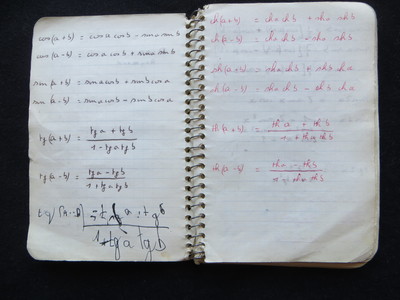 cos(a+b) = cosa cosb - sina sinb
cos(a-b) = cosa cosb + sina sinb
sin(a+b) = sina cosb + sinb cosa
sin(a-b) = sina cosb - sinb cosa
tg(a+b) = tga + tgb
1 - tga tgb
tg(a-b) = tga - tgb
1 + tga tgb
a + tgb
1 tga tgb
ch(a+b) = cha chb + sha shb
ch(a-b) = cha chb - sha shb
sh(a+b) = sha chb + shb cha
sh(a-b) = sha chb - shb cha
th(a+b) = tha + thb
1 + tha thb
th(a-b) = tha - thb
tha thb